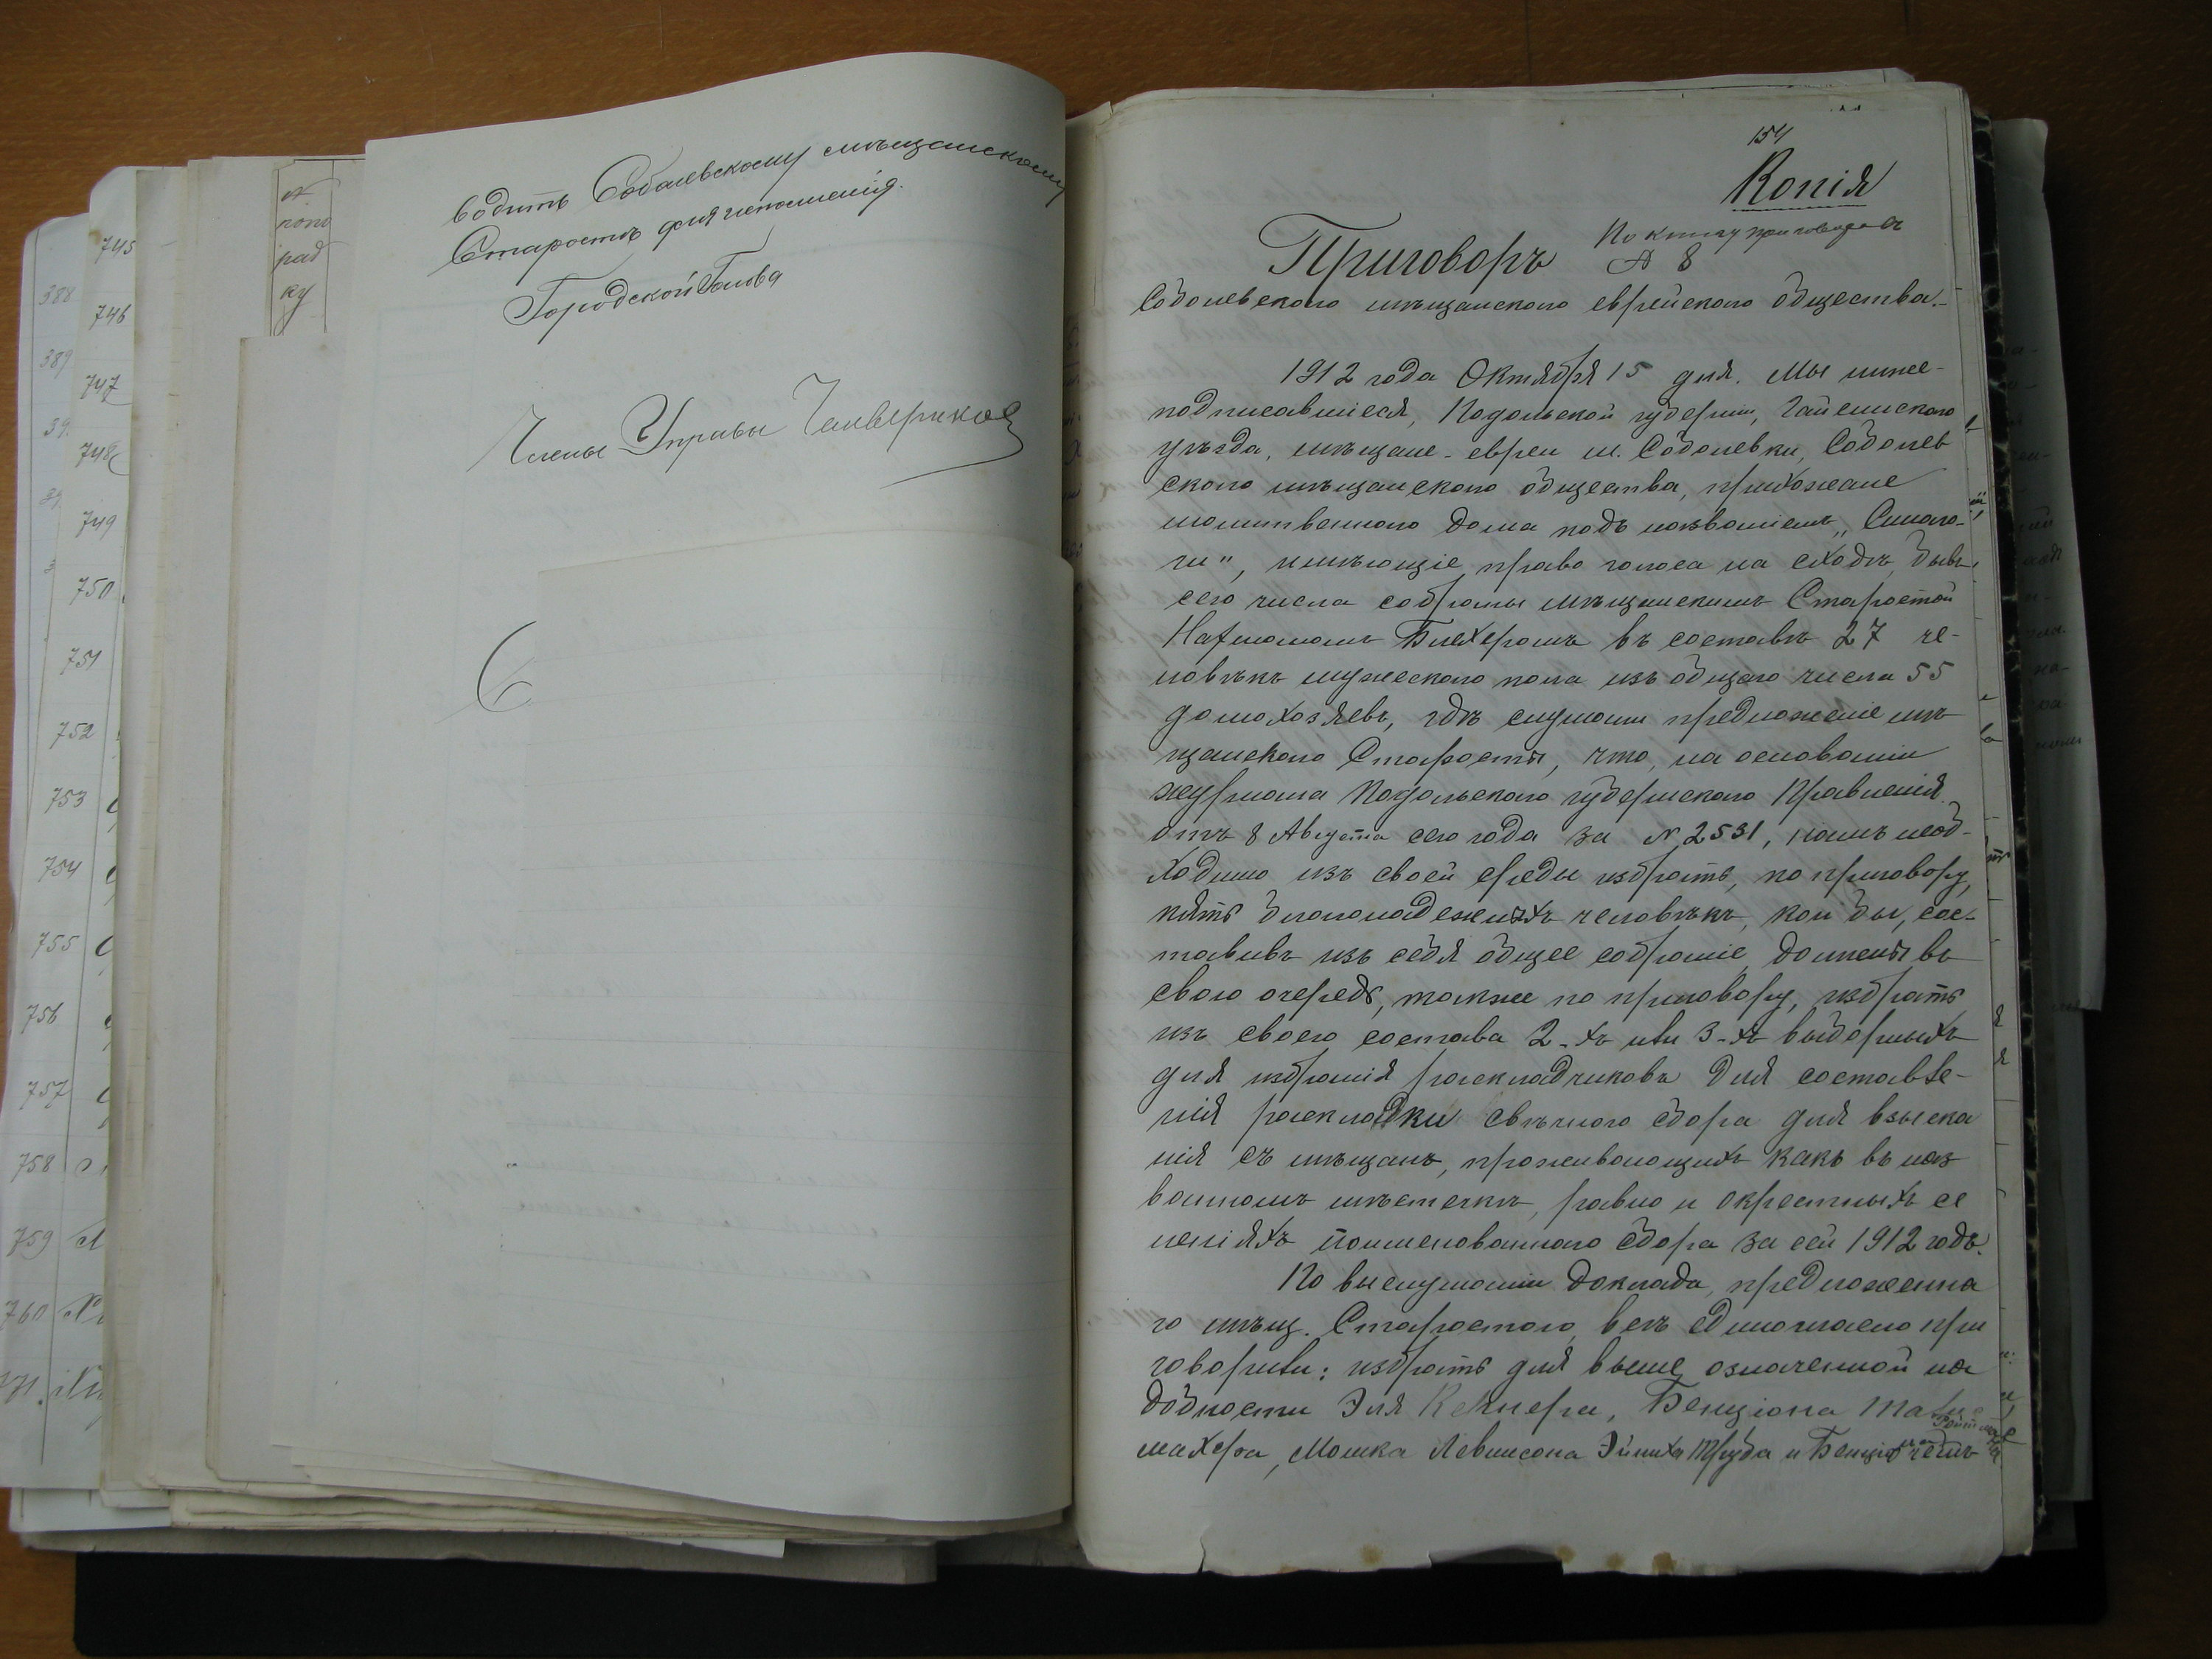 745
388
746
389
747
39.
748
39
749
750
751
752
753
754
755
756
757
758
759
760
771.
копі
рад
ку
водить Соболевскому мѣщанскому
Старостѣ для исполненія.
Городской Голова
Члены Управы
154
Копія
По книгѣ приговоровъ
№ 8
Приговоръ
Соболевского мѣщанского еврейского общества.-
1912 года Октября 15 дня. Мы ниже-
подписавшіеся, Подольской губерніи, Гайсинского
уѣзда, мѣщане-евреи м. Соболевки, Соболев
ского мѣщанского общества, прихожане
молитвенного дома подъ названіемъ „Синаго-
ги", имѣющіе право голоса на сходѣ, бывъ
сего числа собраны мѣщанскимъ Старостой
Нахманомъ Блехеромъ въ составѣ 27 че-
ловѣкъ мужеского пола изъ общаго числа 55
домохозяевъ, гдѣ слушали предложеніе мѣ
щанского Старосты, что, на основаніи
журнала Подольского губернского Правленія
отъ 8 Августа сего года за № 2531, намъ необ-
ходимо изъ своей среды избрать, по приговору,
пять благонадежныхъ человѣкъ, кои бы, сос-
тавивъ изъ себя общее собраніе, должны въ
свою очередь, также по приговору, избрать
изъ своего состава 2-хъ или 3-хъ выборныхъ
для избранія раскладчиковъ для составле-
нія раскладки свѣчного сбора для взыска
нія съ мѣщанъ, проживающихъ какъ въ наз
ванномъ мѣстечкѣ, равно и окрестныхъ се
леніяхъ поименованного сбора за сей 1912 годъ.
По выслушаніи доклада, предложенна
го мѣщ. Старостою, всѣ единогласно при
говорили: избрать для выше означенной на
добности Эля Келнера, Бенціона
махера, Мошка Левинсона Труба и